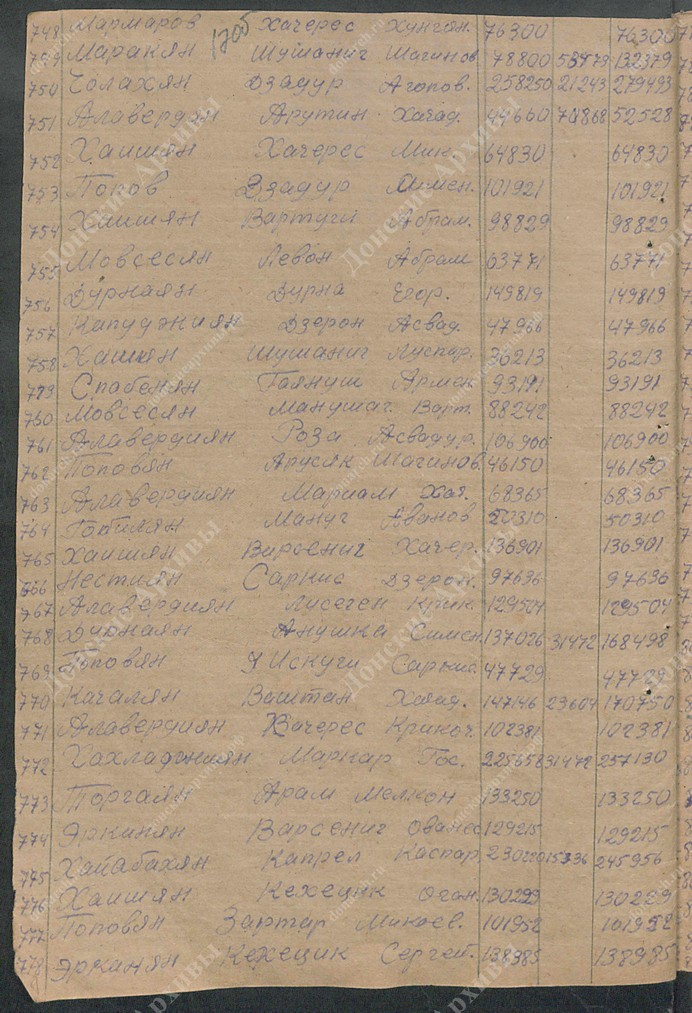 748 Мармаров Хачерес Хунгян. 76300 76300
1706
749 Маракян Шушаниг Шагинов 78800 53579 132379
750 Чолахян Дзадур Агопов. 258250 21243 279493
751 Алавердян Арутин Хачад. 44660 7868 52528
752 Хаишян Хачерес Мик. 64830 64830
753 Попов Дзадур Симен. 101921 101921
754 Хаишян Вартуги Абрам. 98829 98829
755 Мовсесян Левон Абрам 63771 63771
756 Дурнаян Дурна Егор. 149819 149819
757 Капуджиян Дзерон Асвад. 47966 47966
758 Хашян Шушаниг Луспар. 36213 36213
779 Спабенян Гаянуш Армен 93191 93191
760 Мовсесян Манушаг Варт. 88242 88242
761 Алавердиян Роза Асвадур. 106900 106900
762 Поповян Арусяк Шагинов. 46150 46150
763 Алавердиян Мариам Хач. 68365 68365
764 Мануг Аванов 50310 50310
765 Хаишян Варсениг Хачер. 136901 136901
766 Нестиян Саркис Дзерон. 97636 97636
767 Алавердиян Лусеген Крик. 129504 129504
768 Дурнаян Анушка Симен. 137026 31472 168498
769 Поповян Искуги Саркис. 47729 47729
770 Качалян Ваштан Хачад. 147146 23604 170750
771 Алавердиян Хачерес Крикоч. 102381 102381
772 Хахладжиян Маркар Гос. 225658 31472 257130
773 Торгаян Арам Мелкон 133250 133250
774 Эрканян Варсениг Ованес 129215 129215
775 Хайабахян Капрел Каспар 230220 15336 245956
776 Хаишян Кехецик Оган. 130299 130299
777 Поповян Зартар Микаев. 101952 101952
778 Эрканян Кехецик Сергей. 138985 138985
Донские Архивы